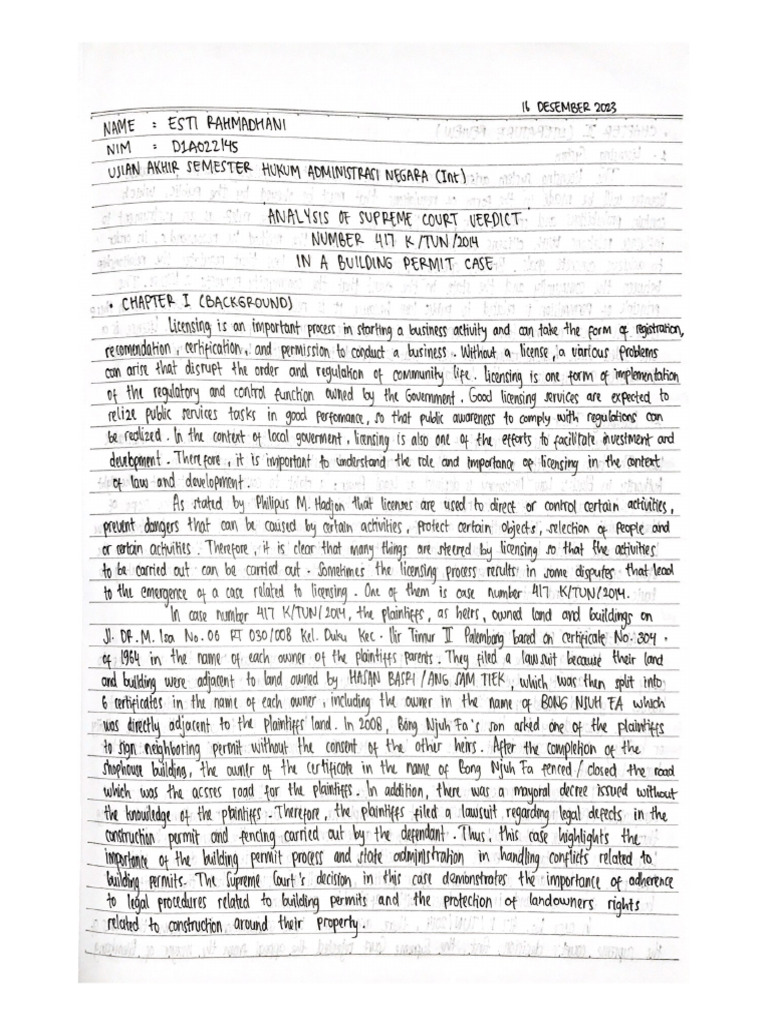 16 DESEMBER 2023
NAME : ESTI RAHMADHANI
NIM : D1A022145
UJIAN AKHIR SEMESTER HUKUM ADMINISTRASI NEGARA (Int)
ANALYSIS OF SUPREME COURT VERDICT
NUMBER 417 K/TUN/2014
IN A BUILDING PERMIT CASE
• CHAPTER I (BACKGROUND)
Licensing is an important process in starting a business activity and can take the form of registration,
recomendation, certification, and permission to conduct a business. Without a license, a various problems
can arise that disrupt the order and regulation of community life. Licensing is one form of implementation
of the regulatory and control function owned by the Government. Good licensing services are expected to
relize public services tasks in good perfomance, so that public awareness to comply with regulations can
be realized. In the context of local goverment, licensing is also one of the efforts to facilitate investment and
development. Therefore, it is important to understand the role and importance of licensing in the context
of law and development.
As stated by Philipus M. Hadjon that licenses are used to direct or control certain activities,
prevent dangers that can be caused by certain activities, protect certain objects, selection of people and
or certain activities. Therefore, it is clear that many things are steered by licensing so that the activities
to be carried out can be carried out. Sometimes the licensing process results in some disputes that lead
to the emergence of a case related to licensing. One of them is case number 417 K/TUN/2014.
In case number 417 K/TUN/2014, the plaintiffs, as heirs, owned land and buildings on
Jl. DR. M. Isa No. 06 RT 030/008 Kel. Duku Kec. Ilir Timur II Palembang based on certificate No. 304.
of 1964 in the name of each owner of the plaintiffs parents. They filed a lawsuit because their land
and building were adjacent to land owned by HASAN BASRI / ANG SAM TIEK, which was then split into
6 certificates in the name of each owner, including the owner in the name of BONG NJUH FA which
was directly adjacent to the plaintiffs land. In 2008, Bong Njuh Fa's son asked one of the plaintiffs
to sign neighboring permit without the consent of the other heirs. After the completion of the
shophouse building, the owner of the certificate in the name of Bong Njuh Fa fenced / closed the road
which was the acsses road for the plaintiffs. In addition, there was a mayoral decree issued without
the knowledge of the plaintiffs. Therefore, the plaintiffs filed a lawsuit regarding legal defects in the
construction permit and fencing carried out by the defendant. Thus, this case highlights the
importance of the building permit process and state administration in handling conflicts related to
building permits. The Supreme Court's decision in this case demonstrates the importance of adherence
to legal procedures related to building permits and the protection of landowners rights
related to construction around their property.